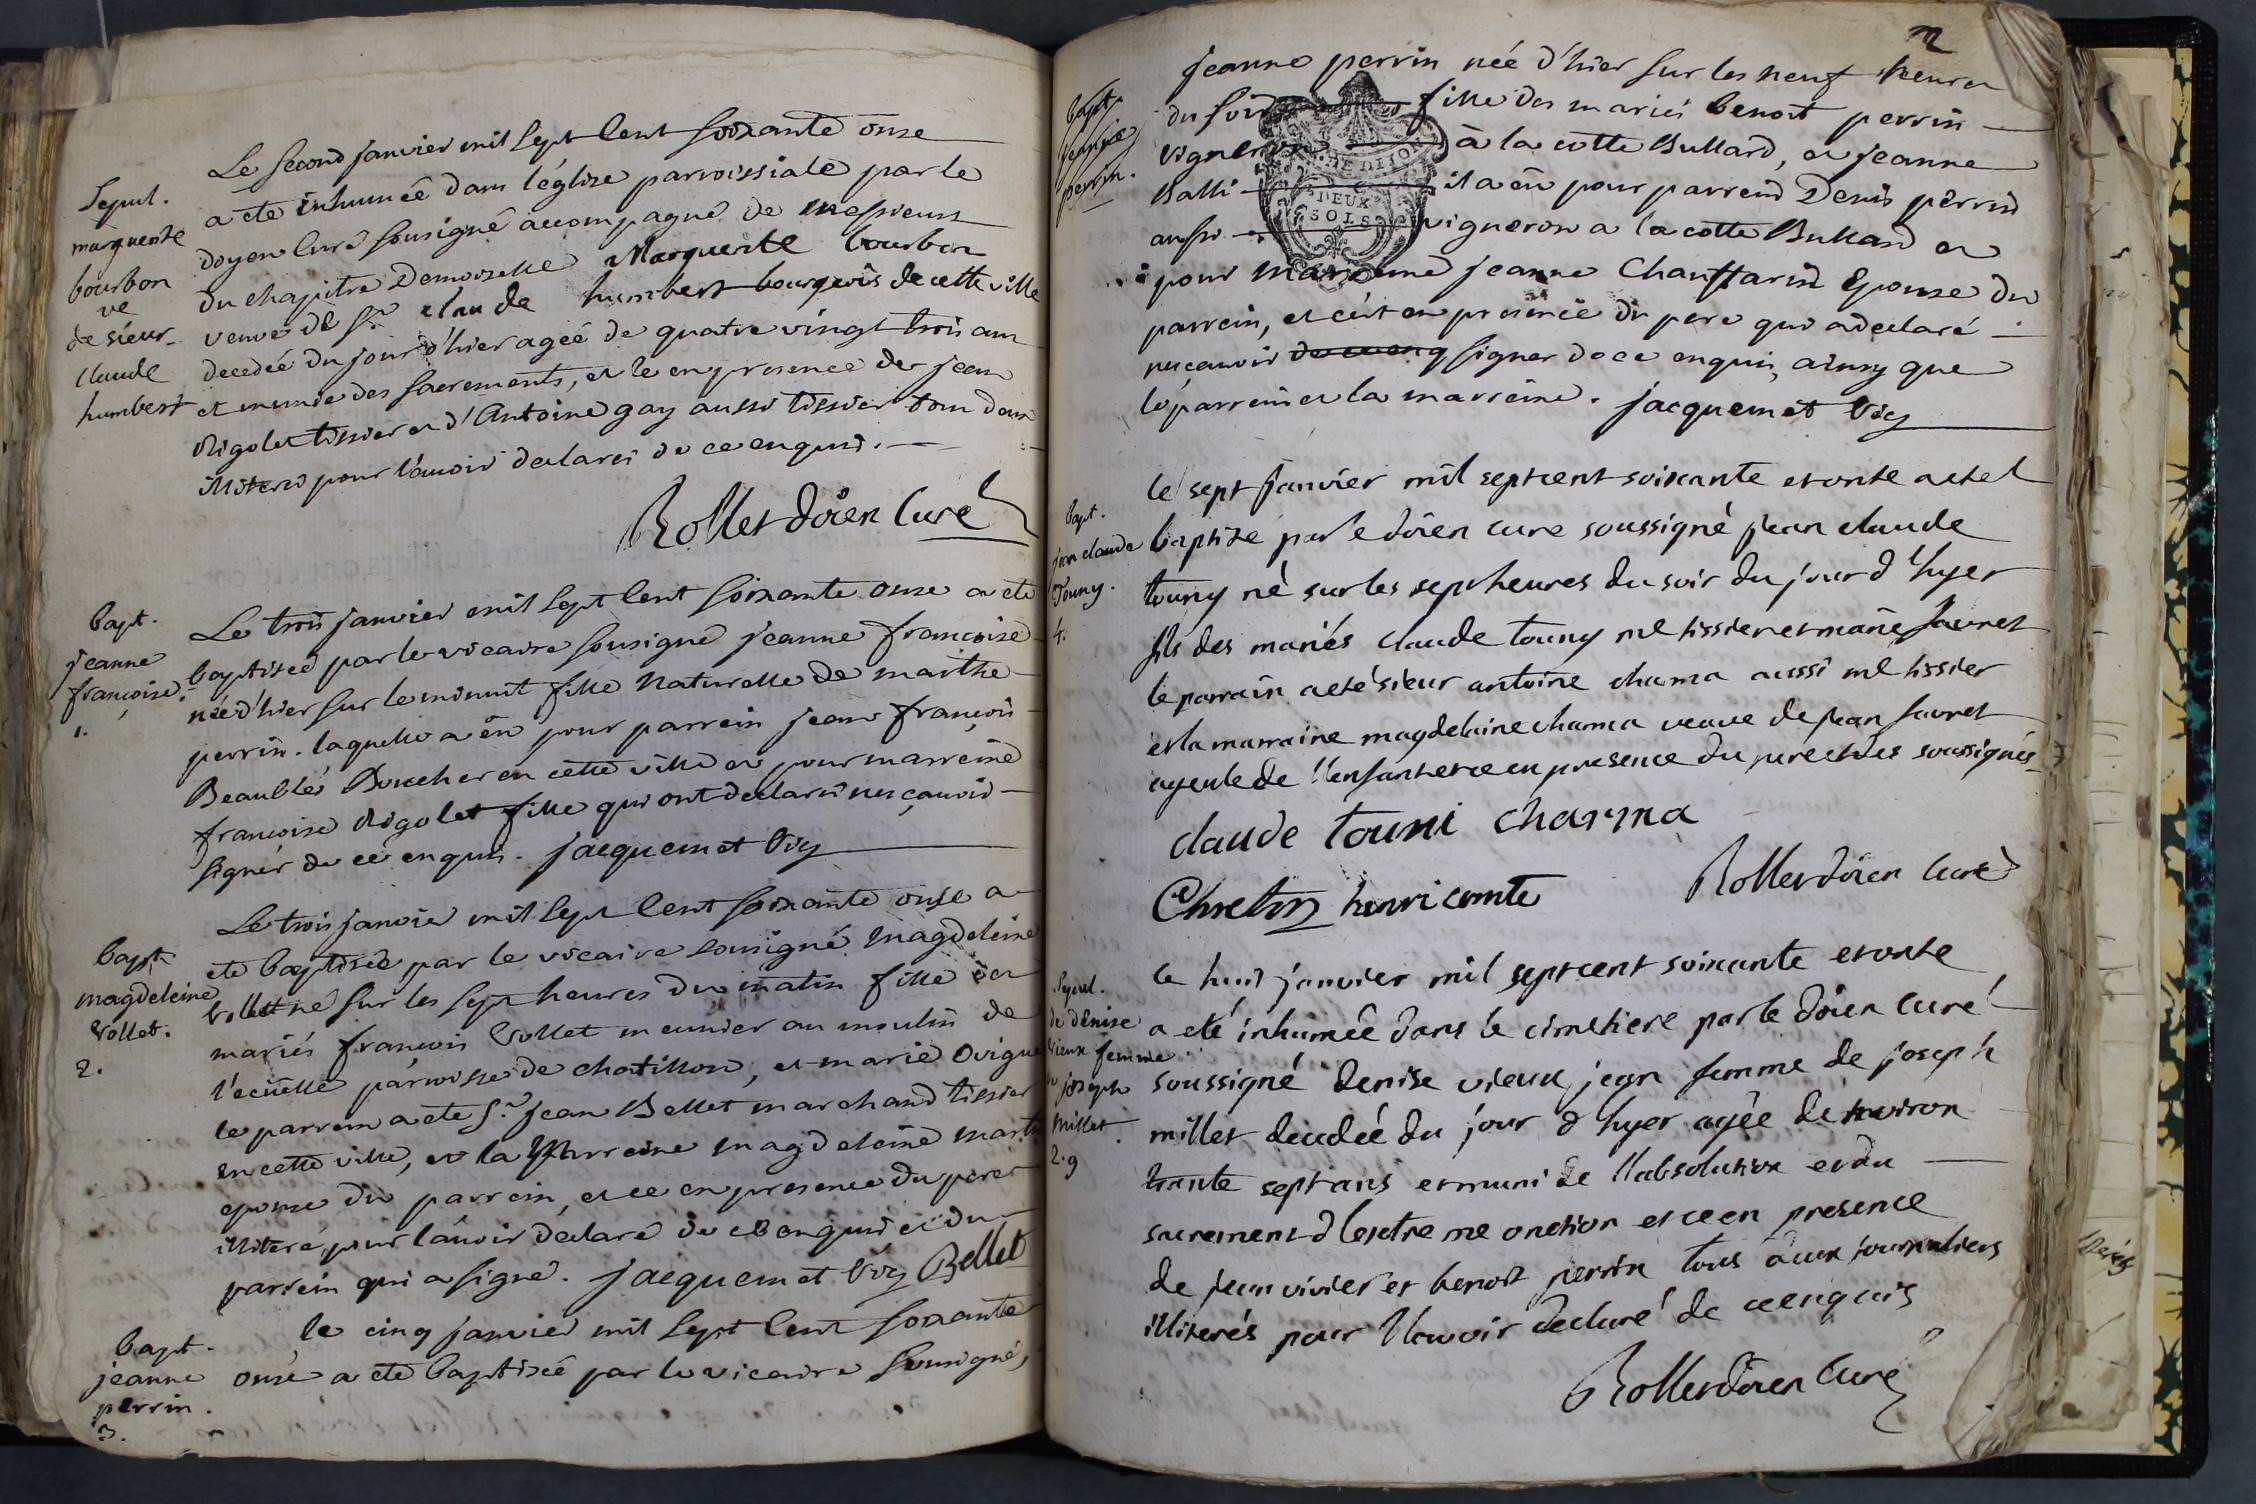 Le second janvier mil sept cent soixante onze
a eté inhumée dans l'église parroissiale par le
doyen curé sousigné accompagné de messieurs
du chapitre Demoiselle Marguerite bourbon
veuve de Sr claude humbert bourgeois de cette ville
decedée du jour d'hier ageé de quatre vingt trois ans
et munie des sacrements, et ce en presence de jean
Rigolet tissier et d'Antoine gay aussi tissier tous deux
illiterés pour l'avoir declaré de ce enquis.
Rollet doïen curé
Sepul.
marguerite
bourbon
ve
de sieur
claude
humbert
Le trois janvier mil sept cent soixante onze a eté
baptiseé par le vicaire sousigné jeanne françoise
née d'hier sur le minuit fille naturelle de marthe
perrin. laquelle a eü pour parrein jean françois
Beaublé Boucher en cette ville et pour marreine
françoise Rigolet fille qui ont declaré ne sçavoir
signer de ce enquis. jacquemet vic
Bapt.
jeanne
françoise.
1.
Le trois janvier mil sept cent soixante onze a
eté baptiseé par le vicaire sousigné magdeleine
vollet né sur les sept heures du matin fille des
mariés françois vollet meunier au moulin de
l'ecuelle parroisse de chatillon, et marie ovigue
le parrein a eté Sr jean Bellet marchand tissier
en cette ville, et la marreine magdeleine martin
epouse du parrein, et ce en presence du pere
illiteré, pour l'avoir declaré de ce enquis et du
parrein qui a signé. jacquemet vic Bellet
Bapt.
magdeleine
vollet.
2.
le cinq janvier mil sept cent soixante
onze a eté baptiseé par le vicaire sousigné,
bapt.
jeanne
perrin.
3.
2
jeanne perrin née d'hier sur les neuf heures
du soir fille des mariés benoit perrin
vigneron à la cotte Bullard, et jeanne
Balli il a eü pour parrein Denis perrin
aussi vigneron a la cotte Bullard et
pour marreine jeanne Chauffarin Epouse du
parrein, et ce en presence du pere qui a declaré
ne sçavoir signer de ce enquis, ainsy que
le parrein et la marreine. jacquemet vic
DE DIJON
DEUX
SOLS
bapt.
jeanne
perrin.
le sept janvier mil sept cent soixante et onze a eté
baptizé par le doïen curé soussigné jean claude
touny né sur les sept heures du soir du jour d'hyer
fils des mariés claude touny me tissier et marie favret
le parrain a eté sieur antoine charna aussi me tissier
et la marraine magdelaine charna veuve de jean favret
ayeule de l'enfant et ce en presence du pere et des soussignés
claude touni charna
Chretin henri comte Rollet doïen curé
bapt.
jean claude
Touny.
4.
le huit janvier mil sept cent soixante et onze
a eté inhumée dans le cimetiere par le doïen curé
soussigné denise vieux jean femme de joseph
millet decedée du jour d'hyer agée denviron
trante sept ans et muni de l'absolution et du
sacrement d'lextreme onction et ce en presence
de jean vivier et benoit perrin tous deux journaliers
illiterés pour l'avoir declaré de ce enquis
Rollet doïen curé
Sepul.
de denise
vieux femme
joseph
millet.
2.9